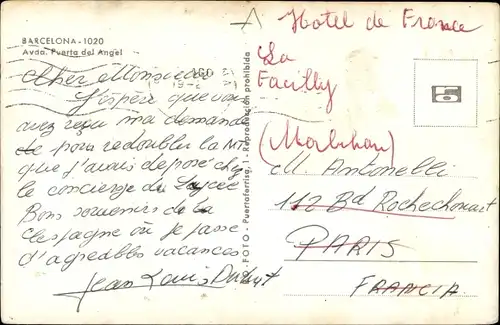 BARCELONA - 1020
Avda. Puerta del Angel
Cher Monsieur
J'espère que vous
avez reçu ma demande
de pour redoubler la
que j'avais déposé chez
le concierge du Lycée
Bons souvenirs de la
Espagne où je passe
d'agréables vacances
Jean Louis
FOTO - Puertaferrisa, 1 - Reproducción prohibida
Hotel de France
La
Facilly
(Morbihan)
M. Antonelli
112 Bd Rochechouart
PARIS
FRANCIA